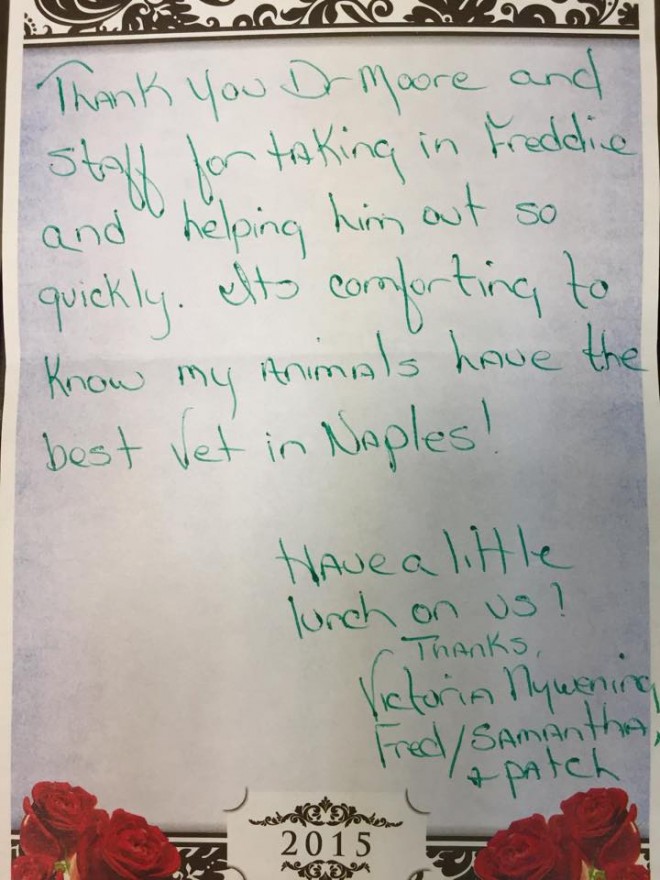 Thank you Dr Moore and
staff for taking in Freddie
and helping him out so
quickly. Its comforting to
know my animals have the
best Vet in Naples!
Have a little
lunch on us!
Thanks,
Victoria Nywening
Fred/Samantha,
+ patch
2015